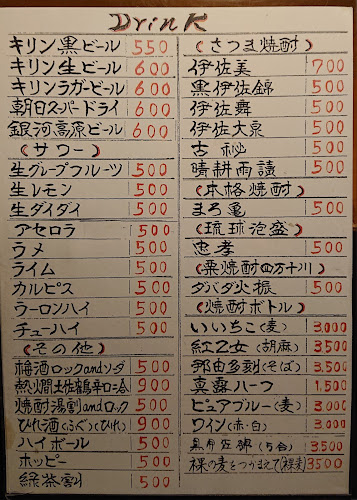 Drink
キリン黒ビール 550
キリン生ビール 600
キリンラガービール 600
朝日スーパードライ 600
銀河高原ビール 600
(サワー)
生グレープフルーツ 500
生レモン 500
生ダイダイ 500
アセロラ 500
ウメ 500
ライム 500
カルピス 500
ウーロンハイ 500
チューハイ 500
(その他)
梅酒ロックandソーダ 500
熱燗土佐鶴辛口冶 900
焼酎湯割andロック 500
ひれ酒(ふぐ)(ひれ) 900
ハイボール 500
ホッピー 500
緑茶割 500
(さつま焼酎)
伊佐美 700
黒伊佐錦 500
伊佐舞 500
伊佐大泉 500
古秘 500
晴耕雨讀 500
(本格焼酎)
まろ亀 500
(琉球泡盛)
忠孝 500
(栗焼酎四万十川)
ダバダ火振 500
(焼酎ボトル)
いいちこ(麦) 3,000
紅乙女(胡麻) 3,500
那由多刻(そば) 3,500
真露ハーフ 1,500
ピュアブルー(麦) 3,000
ワイン(赤・白) 3,000
黒伊佐錦(5合) 3,500
裸の麦をつかまえて(裸麦) 3500